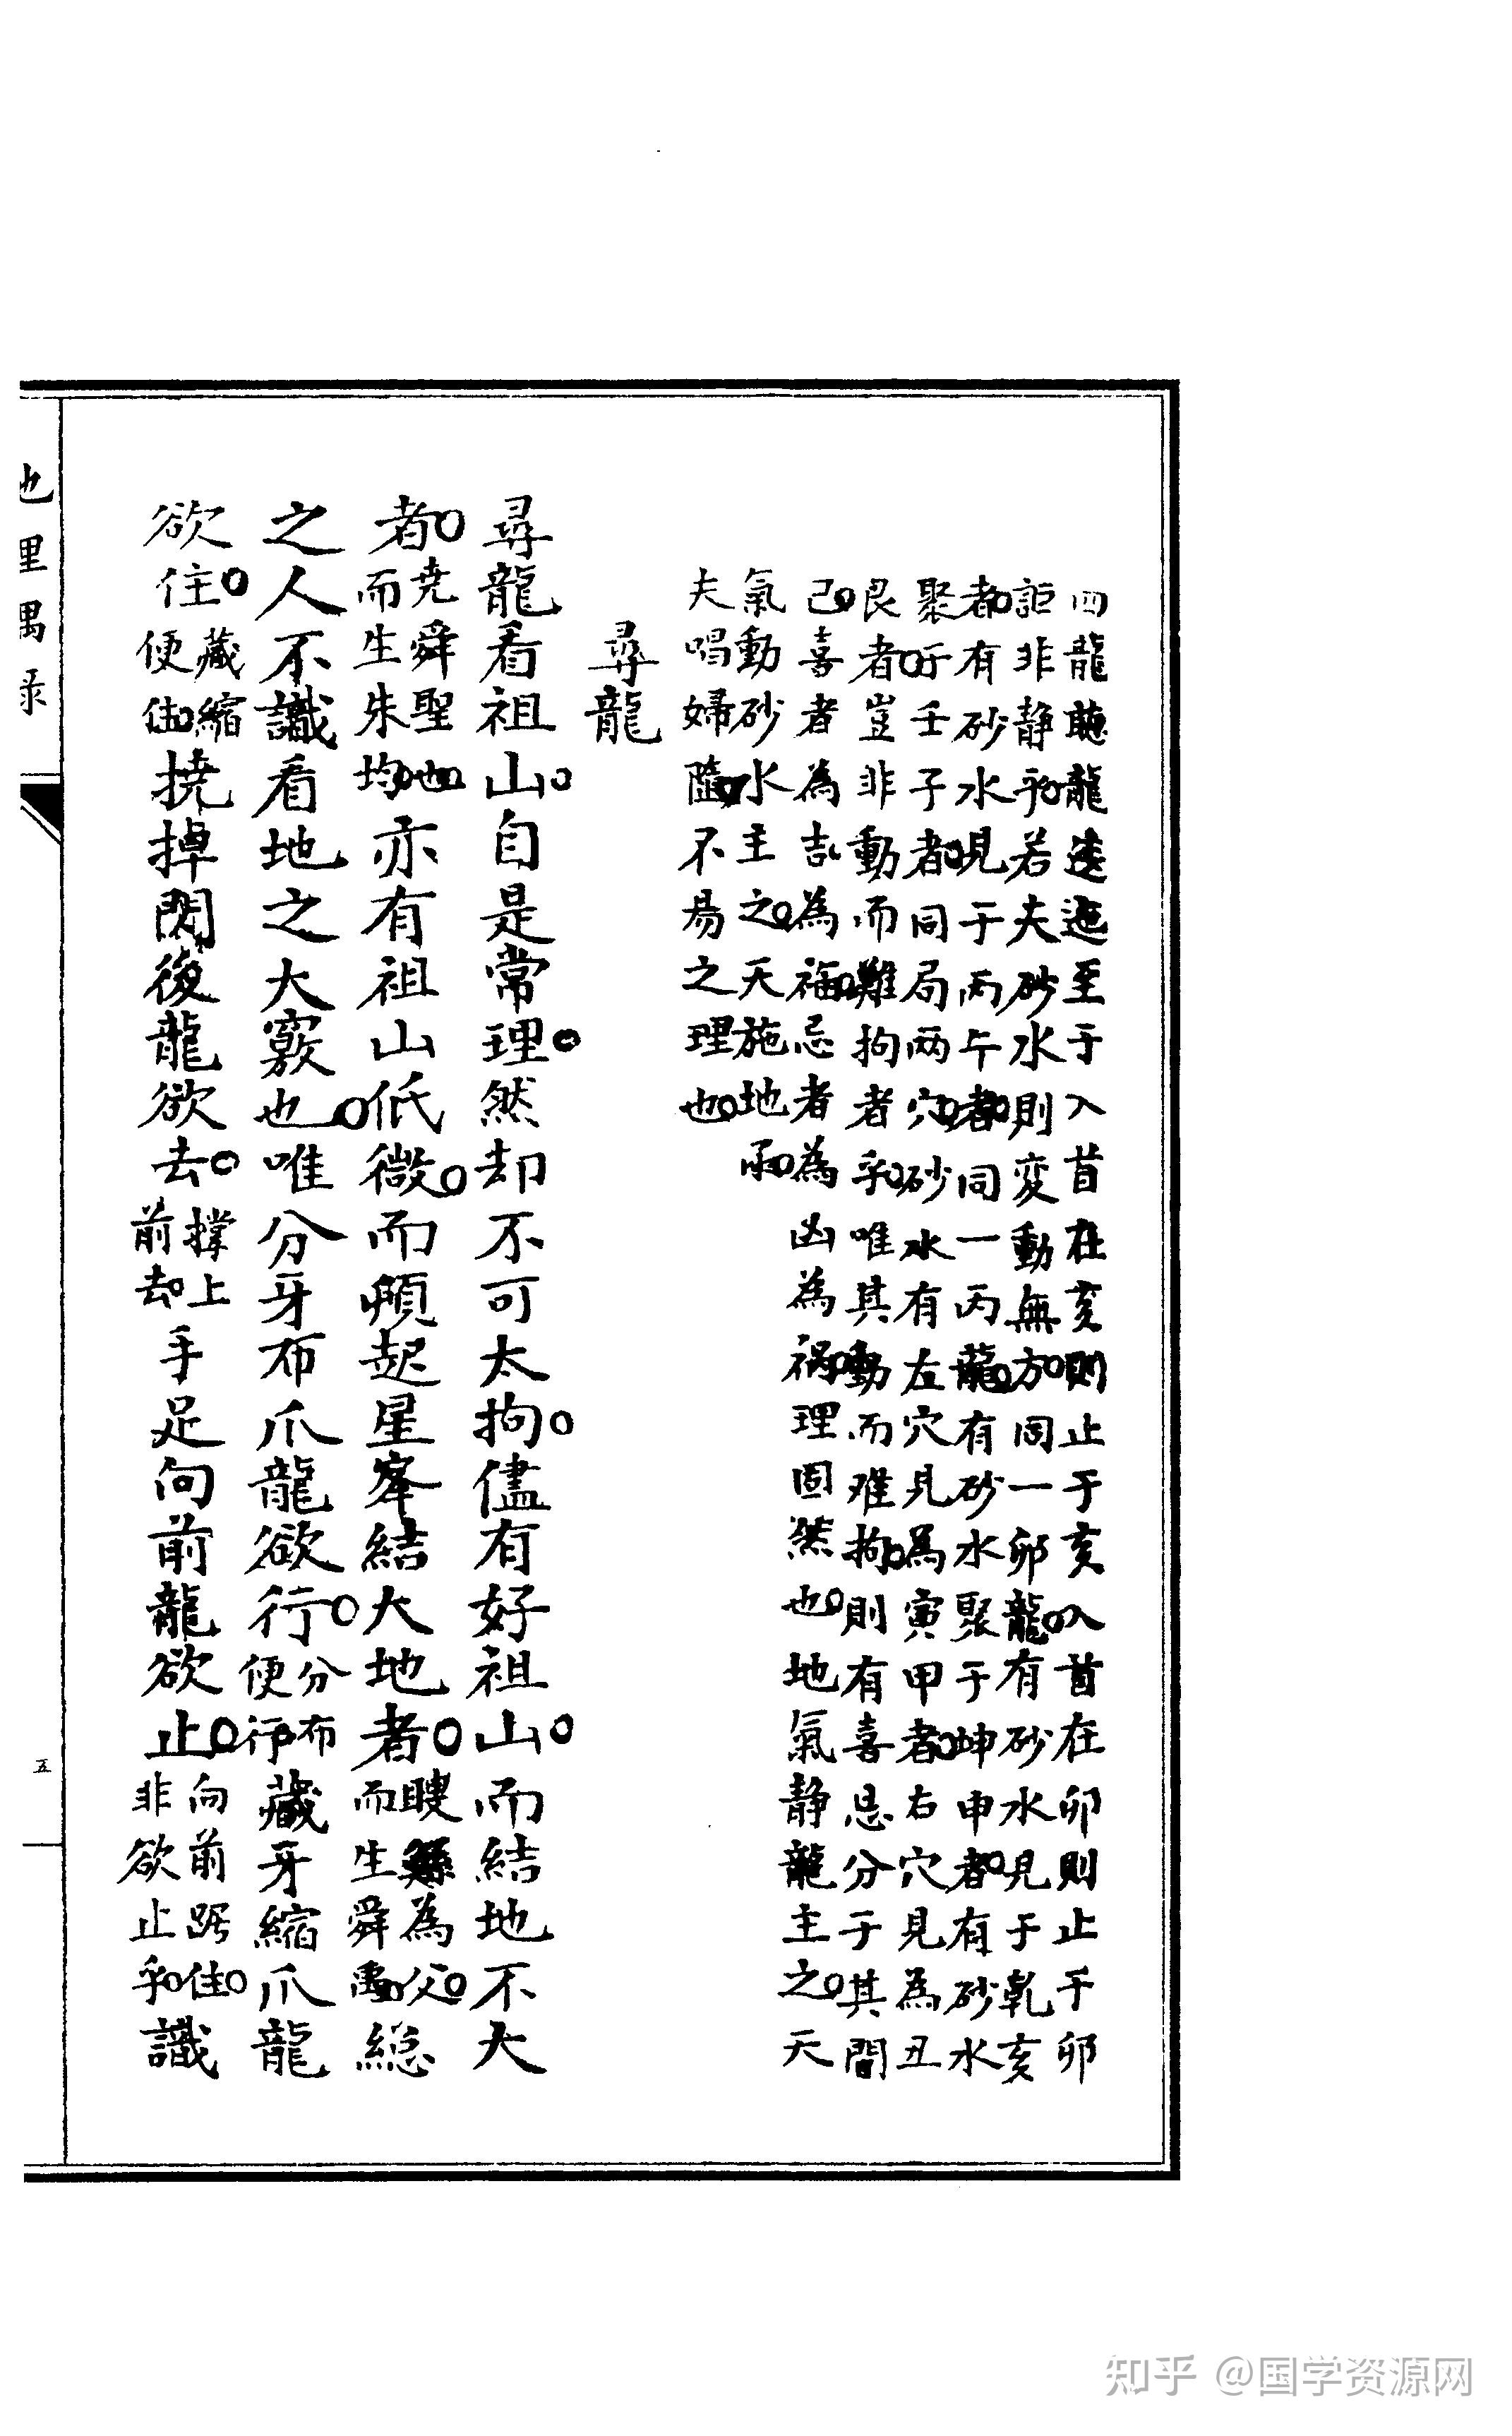 四龍聽龍逶迤至于入首在亥則止于亥入首在卯則止于卯
詎非静乎若夫砂水則変動無方同一卯龍有砂水見于乾亥
者有砂水見于丙午者同一丙龍有砂水聚于坤申者有砂水
聚于壬子者同局两穴砂水有左穴見為寅甲者右穴見為丑
艮者豈非動而難拘者乎唯其動而难拘則有喜忌分于其間
己喜者為吉為福忌者為凶為禍理固然也地氣静龍主之天
氣動砂水主之天施地承
夫唱婦隨不易之理也
尋龍
尋龍看祖山自是常理然却不可太拘儘有好祖山而結地不大
者堯舜聖也而生朱均亦有祖山低微而頓起星峯結大地者瞍鯀為父而生舜禹總
之人不識看地之大竅也唯分牙布爪龍欲行分布便行藏牙縮爪龍
欲住藏縮便住撓掉閃後龍欲去撑上前去手足向前龍欲止向前踞住非欲止乎識
地理偶录
五
知乎 @国学资源网